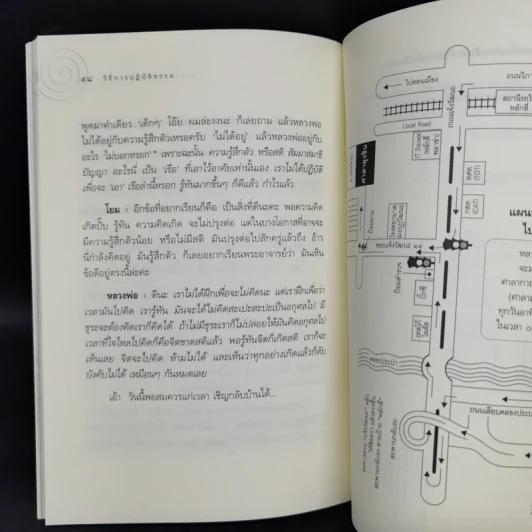 ๕๘ วิธีการปฏิบัติธรรม
พูดมาคำเดียว 'เด็กๆ' โอ๊ย ผมล่ะงงนะ ก็เลยถาม แล้วหลวงพ่อ
ไม่ได้อยู่กับความรู้สึกตัวเหรอครับ 'ไม่ได้อยู่' แล้วหลวงพ่ออยู่กับ
อะไร 'ไม่บอกหรอก'" เพราะฉะนั้น ความรู้สึกตัว หรือสติ สัมมาสมาธิ
ปัญญา อะไรนี่ เป็น 'เรือ' ที่เอาไว้อาศัยเท่านั้นเอง เราไม่ได้ปฏิบัติ
เพื่อจะ 'เอา' เรือลำนี้หรอก รู้ทันมากขึ้นๆ ก็ดีแล้ว กำไรแล้ว
โยม : อีกข้อที่อยากเรียนก็คือ เป็นสิ่งที่ดีนะคะ พอความคิด
เกิดปั๊บ รู้ทัน ความคิดเกิด จะไม่ปรุงต่อ แต่ในบางโอกาสที่อาจจะ
มีความรู้สึกตัวน้อย หรือไม่มีสติ มันปรุงต่อไปสักครู่แล้วถึง อ้าว
นี่กำลังคิดอยู่ มันรู้สึกตัว ก็เลยอยากเรียนพระอาจารย์ว่า มันเห็น
ข้อดีอยู่ตรงนี้ล่ะค่ะ
หลวงพ่อ : ดีนะ เราไม่ได้ฝึกเพื่อจะไม่คิดนะ แต่เราฝึกเพื่อว่า
เวลามันไปคิด เรารู้ทัน มันจะได้ไม่คิดสะเปะสะปะเป็นอกุศลไป มี
ธุระจะต้องคิดเราก็คิดได้ ถ้าไม่มีธุระเราก็ไม่ปล่อยให้มันคิดอกุศลไป
เวลาที่ใจไหลไปคิดก็คือจิตขาดสติแล้ว พอรู้ทันจิตก็เกิดสติ เราก็จะ
เห็นเลย จิตจะไปคิด ห้ามไม่ได้ และเห็นว่าทุกอย่างเกิดแล้วก็ดับ
บังคับไม่ได้ เหมือนๆ กันหมดเลย
เอ้า วันนี้พอสมควรแก่เวลา เชิญกลับบ้านได้...
ไปดอนเมือง
ถนนวิภา
สถานีรถไ
หลักสี่
Local Road
ถนนแจ้งวัฒนะ
IT Square
ศาลาลุงชิน
ทศท
(TOT)
กสท
(CAT)
แผนที่
ไป
ซอยแจ้งวัฒนะ ๑๔
ป้อมตำรวจ
บิ๊กซี
หลว
จะม
ศาลากา
(ศาลา
ทุกวันอาทิ
ในเวลา ๐
คลองประปา
ถนนเลียบคลองประปา
สะพานกลับรถ